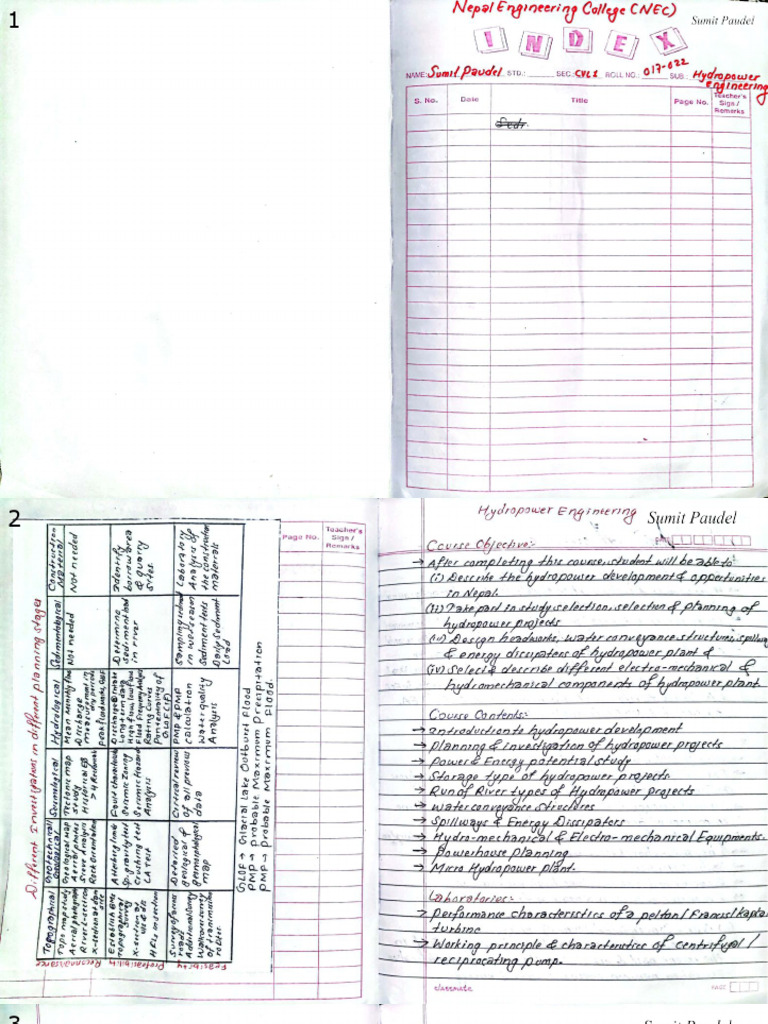 1
Nepal Engineering College (NEC)
Sumit Paudel
INDEX
NAME: Sumit Paudel STD.: SEC: CVL1 ROLL NO.: 017-022 SUB.: Hydropower
engineering
S. No. Date Title Page No. Teacher's
Sign /
Remarks
2
Different Investigations in different planning stages
Topographical
Topo map study
Aerial photograph
River x-section
X-section at dam
site
Establish BMs
Topographical
survey
X-section of
HFLs in section
road
Geotechnical/
Geological
Geological map
Aerial photos
Rock Orientation
Crushing test
LA Test
Detailed
geological &
geomorphological
map
Seismological
Tectonic map
study
Historical EQ
Seismic Zoning
Analysis
Critical review
of all previous
data
Hydrological
Mean monthly flow
Discharge
measurement in
dry periods
Rating Curves
PMP & PMF
calculation
Water quality
Analysis
Sedimentological
Not needed
Determine
sediment load
in river
in wet season
Sediment tests
Daily Sediment
Load
Construction
Material
Not needed
Identify
borrow area
& quarry
sites.
Laboratory
Analysis of
the construction
materials
Reconnaissance
Prefeasibility
Feasibility
GLOF → Glacial Lake Outburst Flood
PMP → Probable Maximum Precipitation
PMF → Probable Maximum Flood.
Page No. Teacher's
Sign /
Remarks
Hydropower Engineering
Sumit Paudel
Course Objective:-
→ After completing this course, student will be able to:
(i) Describe the hydropower development & opportunities
in Nepal.
(ii) Take part in study, selection, selection & planning of
hydropower projects
(iii) Design headworks, water conveyance structures, spillway
& energy dissipaters of hydropower plant &
(iv) Select & describe different electro-mechanical &
hydromechanical components of hydropower plant.
Course Contents:-
→ Introduction to hydropower development
→ Planning & investigation of hydropower projects
→ Power & Energy potential study
→ Storage type of hydropower projects
→ Run of River types of Hydropower projects
→ Water conveyance Structures
→ Spillways & Energy Dissipaters
→ Hydro-mechanical & Electro-mechanical Equipments.
→ Powerhouse planning
→ Micro Hydropower plant.
Laboratories:-
→ Performance characteristics of a pelton/Francis/Kapla
turbine
→ Working principle & characteristics of centrifugal/
reciprocating pump.
classmate
PAGE
3
Sumit Paudel